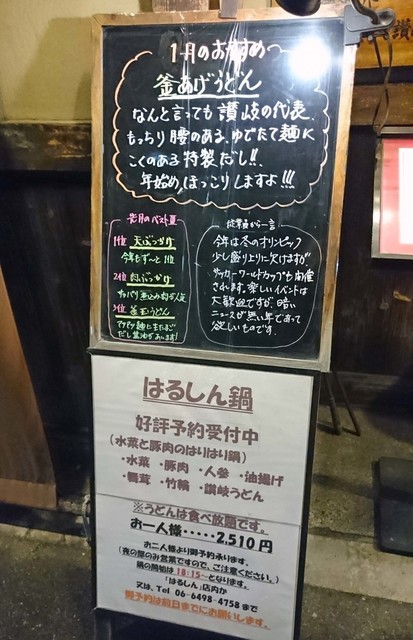 1月のおすすめ
釜あげうどん
なんと言っても讃岐の代表
もっちり腰のある、ゆでたて麺に
こくのある特製だし!!
年始め、ほっこりしますよ!!!
先月のベスト3
1位 天ぶっかけ
今年もず〜っと1位
2位 肉ぶっかけ
3位 釜玉うどん
従業員から一言
今年は冬のオリンピック
少し盛り上りに欠けますが
サッカーワールドカップも開催
されます。楽しいイベントは
大歓迎ですが、暗い
ニュースが無い年であって
欲しいものです。
はるしん鍋
好評予約受付中
(水菜と豚肉のはりはり鍋)
・水菜 ・豚肉 ・人参 ・油揚げ
・舞茸 ・竹輪 ・讃岐うどん
※うどんは食べ放題です。
お一人様・・・・・2,510円
お二人様より御予約承ります。
(夜の部のみ営業ですので、ご注意ください。)
鍋の開始は18:15〜となります。
「はるしん」店内か
又は、Tel 06-6498-4758まで
御予約は前日までにお願いします。